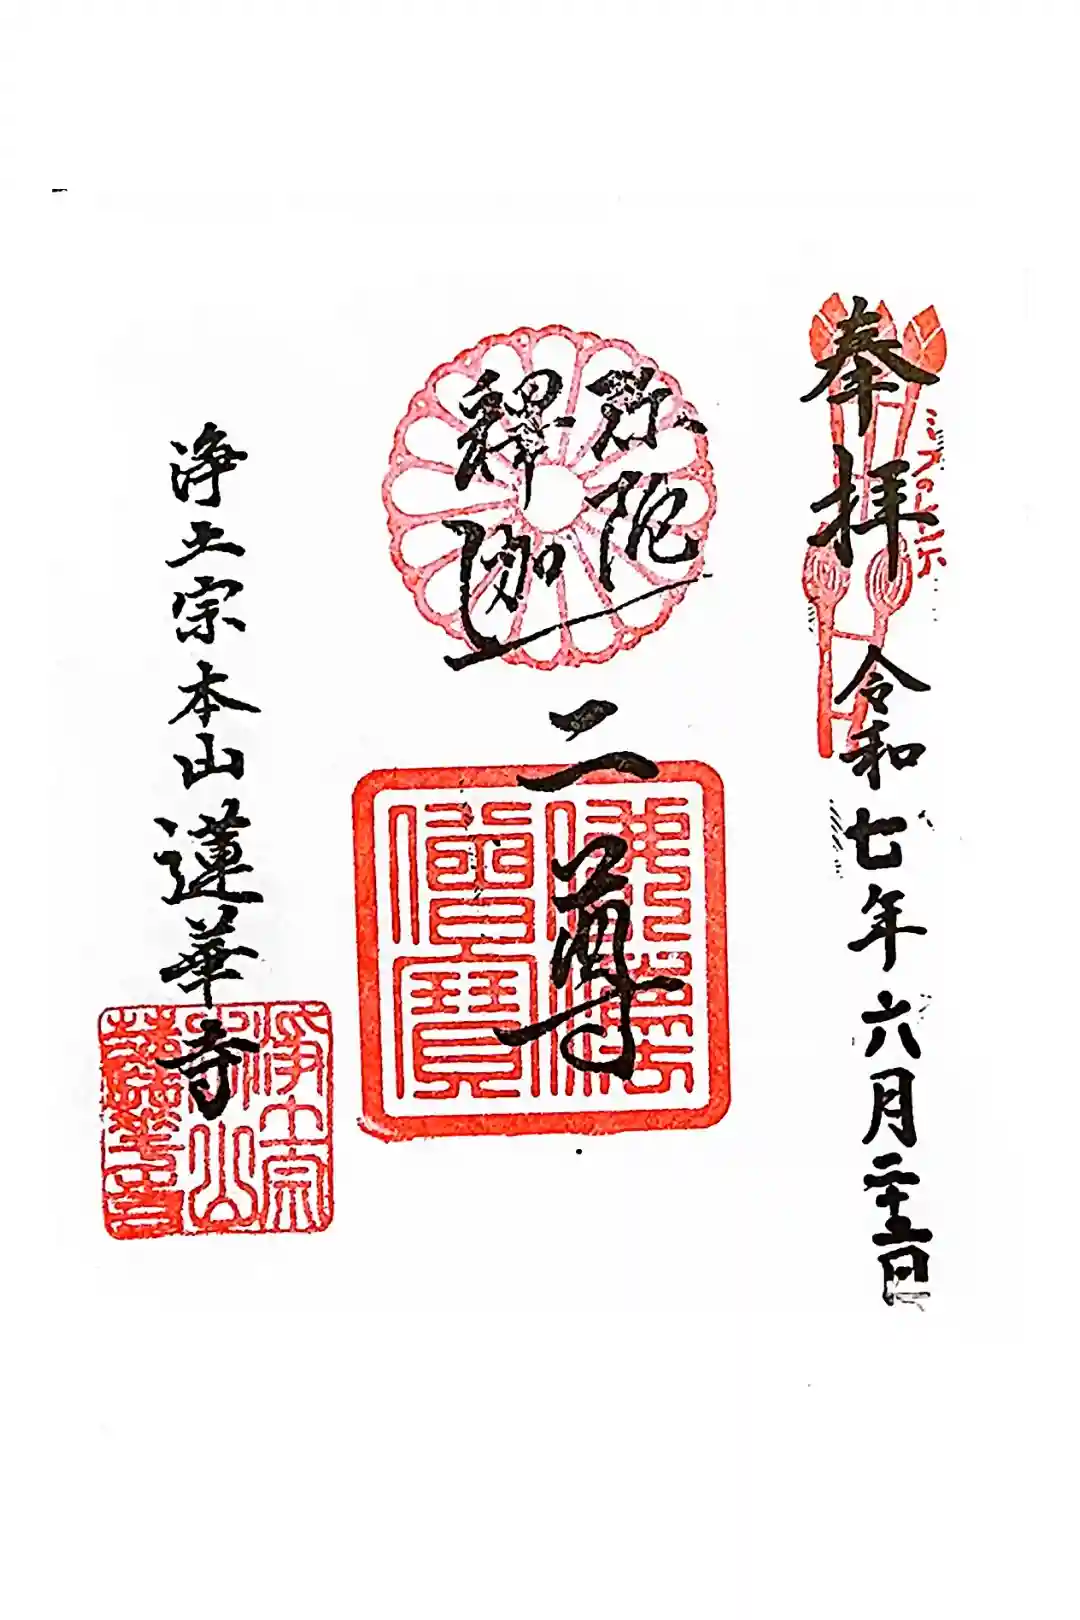 奉拝
令和七年六月二十五日
弥陀
釋迦
二尊
佛法
僧寶
浄土宗本山蓮華寺
浄土宗
本山
蓮華寺